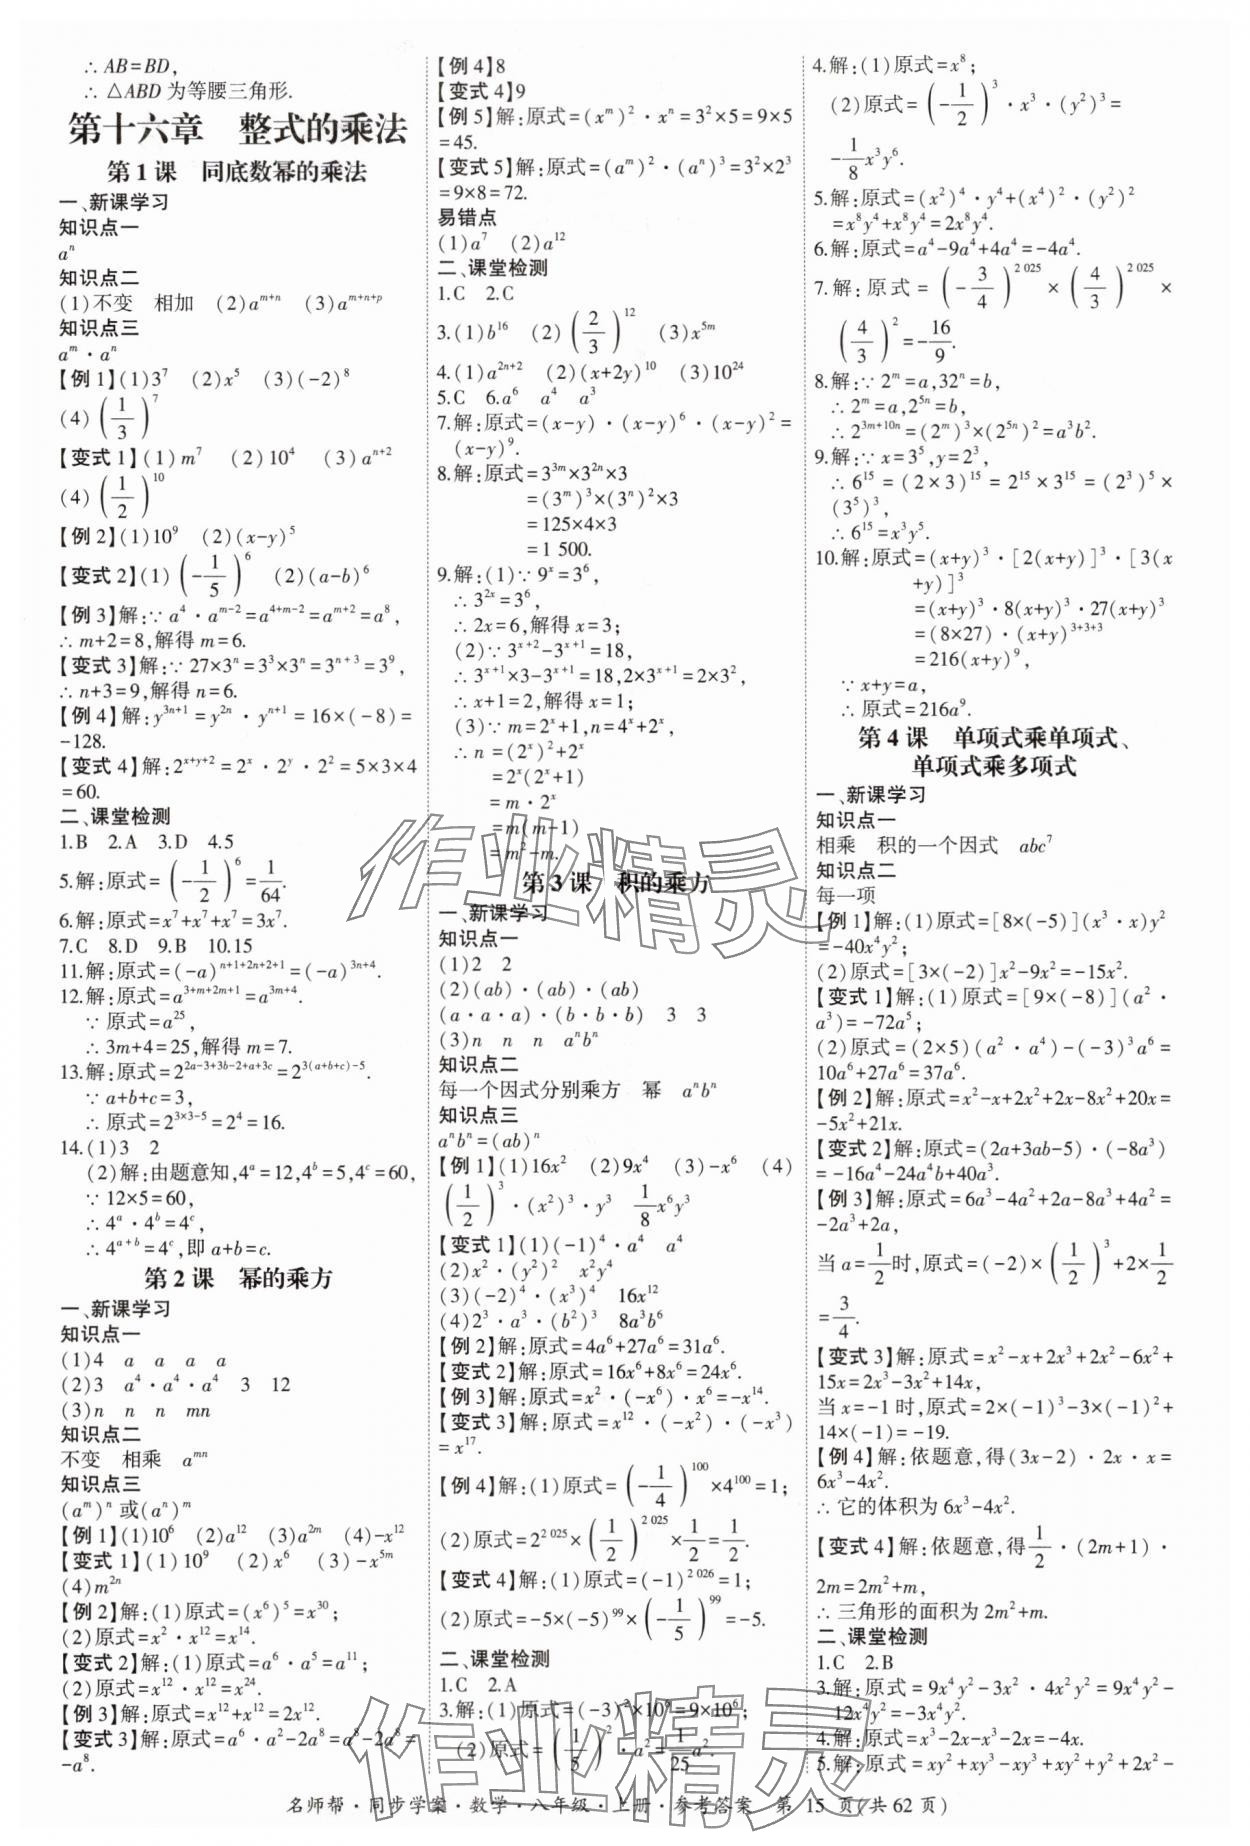 ∴ AB=BD,
∴ △ABD 为等腰三角形.
第十六章　整式的乘法
第 1 课　同底数幂的乘法
一、新课学习
知识点一
aⁿ
知识点二
(1)不变　相加　(2)a^{m+n}　(3)a^{m+n+p}
知识点三
a^m · a^n
【例 1】(1)3^7　(2)x^5　(3)(-2)^8
(4)(1/3)^7
【变式 1】(1)m^7　(2)10^4　(3)a^{n+2}
(4)(1/2)^{10}
【例 2】(1)10^9　(2)(x-y)^5
【变式 2】(1)(-1/5)^6　(2)(a-b)^6
【例 3】解:∵ a^4 · a^{m-2}=a^{4+m-2}=a^{m+2}=a^8,
∴ m+2=8,解得 m=6.
【变式 3】解:∵ 27×3^n=3^3×3^n=3^{n+3}=3^9,
∴ n+3=9,解得 n=6.
【例 4】解:y^{3n+1}=y^{2n} · y^{n+1}=16×(-8)=
-128.
【变式 4】解:2^{x+y+2}=2^x · 2^y · 2^2=5×3×4
=60.
二、课堂检测
1.B　2.A　3.D　4.5
5.解:原式=(-1/2)^6=1/64.
6.解:原式=x^7+x^7+x^7=3x^7.
7.C　8.D　9.B　10.15
11.解:原式=(-a)^{n+1+2n+2+1}=(-a)^{3n+4}.
12.解:原式=a^{3+m+2m+1}=a^{3m+4}.
∵ 原式=a^{25},
∴ 3m+4=25,解得 m=7.
13.解:原式=2^{2a-3+3b-2+a+3c}=2^{3(a+b+c)-5}.
∵ a+b+c=3,
∴ 原式=2^{3×3-5}=2^4=16.
14.(1)3　2
(2)解:由题意知,4^a=12,4^b=5,4^c=60,
∵ 12×5=60,
∴ 4^a · 4^b=4^c,
∴ 4^{a+b}=4^c,即 a+b=c.
第 2 课　幂的乘方
一、新课学习
知识点一
(1)4　a　a　a　a
(2)3　a^4 · a^4 · a^4　3　12
(3)n　n　n　mn
知识点二
不变　相乘　a^{mn}
知识点三
(a^m)^n 或(a^n)^m
【例 1】(1)10^6　(2)a^{12}　(3)a^{2m}　(4)-x^{12}
【变式 1】(1)10^9　(2)x^6　(3)-x^{5m}
(4)m^{2n}
【例 2】解:(1)原式=(x^6)^5=x^{30};
(2)原式=x^2 · x^{12}=x^{14}.
【变式 2】解:(1)原式=a^6 · a^5=a^{11};
(2)原式=x^{12} · x^{12}=x^{24}.
【例 3】解:原式=x^{12}+x^{12}=2x^{12}.
【变式 3】解:原式=a^6 · a^2-2a^8=a^8-2a^8=
-a^8.
【例 4】8
【变式 4】9
【例 5】解:原式=(x^m)^2 · x^n=3^2×5=9×5
=45.
【变式 5】解:原式=(a^m)^2 · (a^n)^3=3^2×2^3
=9×8=72.
易错点
(1)a^7　(2)a^{12}
二、课堂检测
1.C　2.C
3.(1)b^{16}　(2)(2/3)^{12}　(3)x^{5m}
4.(1)a^{2n+2}　(2)(x+2y)^{10}　(3)10^{24}
5.C　6.a^6　a^4　a^3
7.解:原式=(x-y) · (x-y)^6 · (x-y)^2=
(x-y)^9.
8.解:原式=3^{3m}×3^{2n}×3
=(3^m)^3×(3^n)^2×3
=125×4×3
=1 500.
9.解:(1)∵ 9^x=3^6,
∴ 3^{2x}=3^6,
∴ 2x=6,解得 x=3;
(2)∵ 3^{x+2}-3^{x+1}=18,
∴ 3^{x+1}×3-3^{x+1}=18,2×3^{x+1}=2×3^2,
∴ x+1=2,解得 x=1;
(3)∵ m=2^x+1,n=4^x+2^x,
∴ n=(2^x)^2+2^x
=2^x(2^x+1)
=m · 2^x
=m(m-1)
=m^2-m.
第 3 课　积的乘方
一、新课学习
知识点一
(1)2　2
(2)(ab) · (ab) · (ab)
(a · a · a) · (b · b · b)　3　3
(3)n　n　n　a^nb^n
知识点二
每一个因式分别乘方　幂　a^nb^n
知识点三
a^nb^n=(ab)^n
【例 1】(1)16x^2　(2)9x^4　(3)-x^6　(4)
(1/2)^3 · (x^2)^3 · y^3　1/8 x^6y^3
【变式 1】(1)(-1)^4 · a^4　a^4
(2)x^2 · (y^2)^2　x^2y^4
(3)(-2)^4 · (x^3)^4　16x^{12}
(4)2^3 · a^3 · (b^2)^3　8a^3b^6
【例 2】解:原式=4a^6+27a^6=31a^6.
【变式 2】解:原式=16x^6+8x^6=24x^6.
【例 3】解:原式=x^2 · (-x^6) · x^6=-x^{14}.
【变式 3】解:原式=x^{12} · (-x^2) · (-x^3)
=x^{17}.
【例 4】解:(1)原式=(-1/4)^{100}×4^{100}=1;
(2)原式=2^{2 025}×(1/2)^{2 025}×1/2=1/2.
【变式 4】解:(1)原式=(-1)^{2 026}=1;
(2)原式=-5×(-5)^{99}×(-1/5)^{99}=-5.
二、课堂检测
1.C　2.A
3.解:(1)原式=(-3)^2×10^6=9×10^6;
(2)原式=(1/5)^2 · a^2=1/25 a^2.
4.解:(1)原式=x^8;
(2)原式=(-1/2)^3 · x^3 · (y^2)^3=
-1/8 x^3y^6.
5.解:原式=(x^2)^4 · y^4+(x^4)^2 · (y^2)^2
=x^8y^4+x^8y^4=2x^8y^4.
6.解:原式=a^4-9a^4+4a^4=-4a^4.
7.解:原式=(-3/4)^{2 025}×(4/3)^{2 025}×
(4/3)^2=-16/9.
8.解:∵ 2^m=a,32^n=b,
∴ 2^m=a,2^{5n}=b,
∴ 2^{3m+10n}=(2^m)^3×(2^{5n})^2=a^3b^2.
9.解:∵ x=3^5,y=2^3,
∴ 6^{15}=(2×3)^{15}=2^{15}×3^{15}=(2^3)^5×
(3^5)^3,
∴ 6^{15}=x^3y^5.
10.解:原式=(x+y)^3 · [2(x+y)]^3 · [3(x
+y)]^3
=(x+y)^3 · 8(x+y)^3 · 27(x+y)^3
=(8×27) · (x+y)^{3+3+3}
=216(x+y)^9,
∵ x+y=a,
∴ 原式=216a^9.
第 4 课　单项式乘单项式、
单项式乘多项式
一、新课学习
知识点一
相乘　积的一个因式　abc^7
知识点二
每一项
【例 1】解:(1)原式=[8×(-5)](x^3 · x)y^2
=-40x^4y^2;
(2)原式=[3×(-2)]x^2-9x^2=-15x^2.
【变式 1】解:(1)原式=[9×(-8)](a^2 ·
a^3)=-72a^5;
(2)原式=(2×5)(a^2 · a^4)-(-3)^3a^6=
10a^6+27a^6=37a^6.
【例 2】解:原式=x^2-x+2x^2+2x-8x^2+20x=
-5x^2+21x.
【变式 2】解:原式=(2a+3ab-5) · (-8a^3)
=-16a^4-24a^4b+40a^3.
【例 3】解:原式=6a^3-4a^2+2a-8a^3+4a^2=
-2a^3+2a,
当 a=1/2时,原式=(-2)×(1/2)^3+2×1/2
=3/4.
【变式 3】解:原式=x^2-x+2x^3+2x^2-6x^2+
15x=2x^3-3x^2+14x,
当 x=-1 时,原式=2×(-1)^3-3×(-1)^2+
14×(-1)=-19.
【例 4】解:依题意,得(3x-2) · 2x · x=
6x^3-4x^2.
∴ 它的体积为 6x^3-4x^2.
【变式 4】解:依题意,得1/2 · (2m+1) ·
2m=2m^2+m,
∴ 三角形的面积为 2m^2+m.
二、课堂检测
1.C　2.B
3.解:原式=9x^4y^2-3x^2 · 4x^2y^2=9x^4y^2-
12x^4y^2=-3x^4y^2.
4.解:原式=x^3-2x-x^3-2x=-4x.
5.解:原式=xy^2+xy^3-xy^3+xy^2+y^2+2xy^2-
名师帮·同步学案·数学·八年级·上册·参考答案　第 15 页(共 62 页)
作业精灵
作业精灵